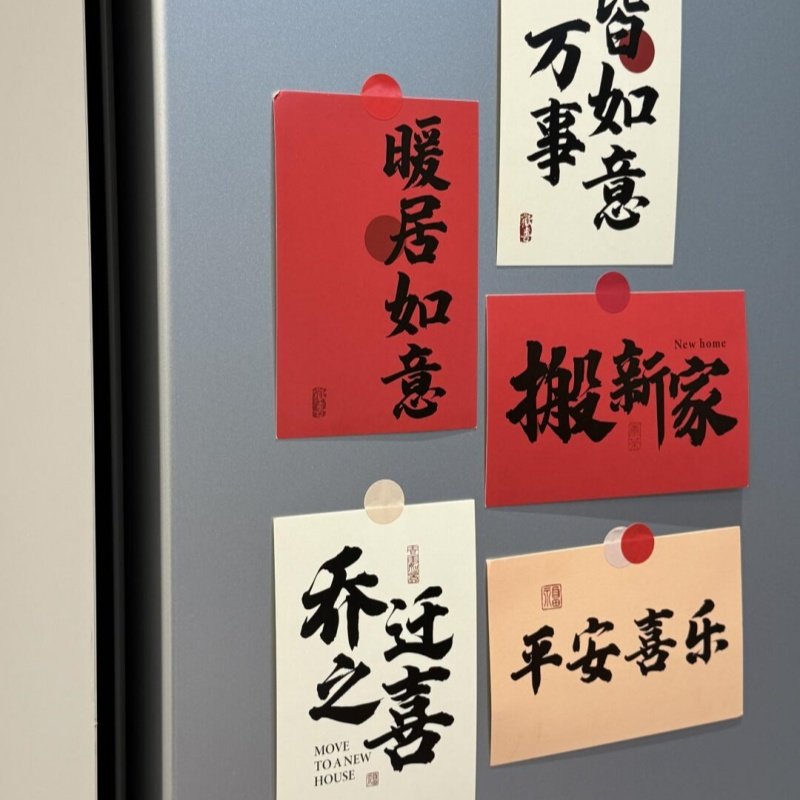 万事
皆如意
暖居如意
New home
搬新家
乔迁
之喜
MOVE
TO A NEW
HOUSE
平安喜乐